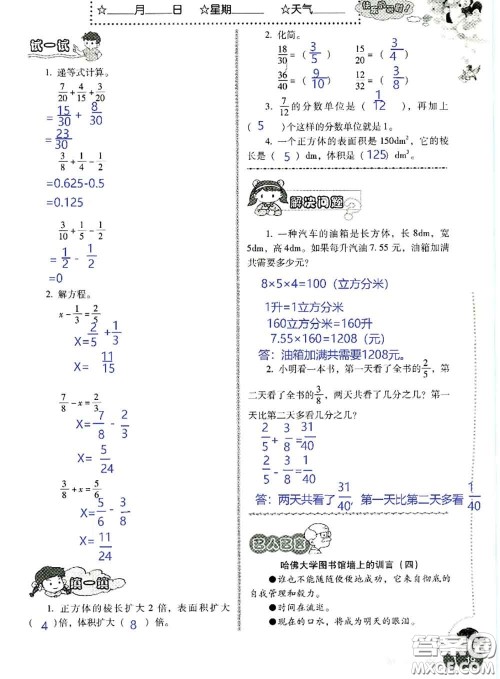 ☆____月____日 ☆星期____ ☆天气____
试一试
1. 递等式计算。
7/20+4/15+3/20
=15/30+8/30
=23/30
3/8+1/4-1/2
=0.625-0.5
=0.125
3/10+1/5-1/2
=1/2-1/2
=0
2. 解方程。
x-1/3=2/5
X=2/5+1/3
X=11/15
7/8-x=2/3
X=7/8-2/3
X=5/24
3/8+x=5/6
X=5/6-3/8
X=11/24
填一填
1. 正方体的棱长扩大 2 倍，表面积扩大
（4）倍，体积扩大（8）倍。
2. 化简。
18/30=（3/5） 15/40=（3/8）
36/40=（9/10） 12/32=（3/8）
3. 7/12的分数单位是（1/12），再加上
（5）个这样的分数单位就是1。
4. 一个正方体的表面积是 150dm²，它的棱
长是（5）dm，体积是（125）dm³。
解决问题
1. 一种汽车的油箱是长方体，长 8dm，宽
5dm，高 4dm。如果每升汽油 7.55 元，油箱加满
共需要多少元？
8×5×4=100（立方分米）
1升=1立方分米
160立方分米=160升
7.55×160=1208（元）
答：油箱加满共需要1208元。
2. 小明看一本书，第一天看了全书的2/5，第
二天看了全书的3/8，两天共看了几分之几？第一
天比第二天多看几分之几？
2/5+3/8=31/40
2/5-3/8=1/40
答：两天共看了31/40，第一天比第二天多看1/40
名人名言
哈佛大学图书馆墙上的训言（四）
●谁也不能随随便便地成功，它来自彻底的
自我管理和毅力。
●时间在流逝。
●现在的口水，将成为明天的眼泪。